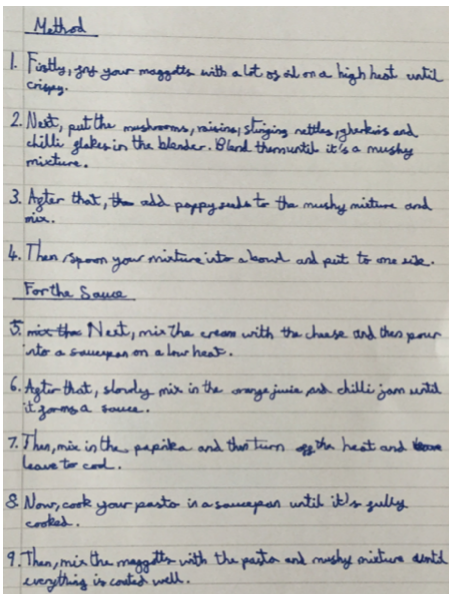 Method
1. Firstly, fry your maggotts with a lot of oil on a high heat until
crispy.
2. Next, put the mushrooms, raisins, stinging nettles, gherkins and
chilli flakes in the blender. Blend them until it's a mushy
mixture.
3. After that, the add poppy seeds to the mushy mixture and
mix.
4. Then, spoon your mixture into a bowl and put to one side.
For the Sauce
5. mix the Next, mix the cream with the cheese and then pour
into a saucepan on a low heat.
6. After that, slowly mix in the orange juice and chilli jam until
it forms a sauce.
7. Then, mix in the paprika and then turn off the heat and
leave to cool.
8. Now, cook your pasta in a saucepan until it's fully
cooked.
9. Then, mix the maggotts with the pasta and mushy mixture until
everything is coated well.